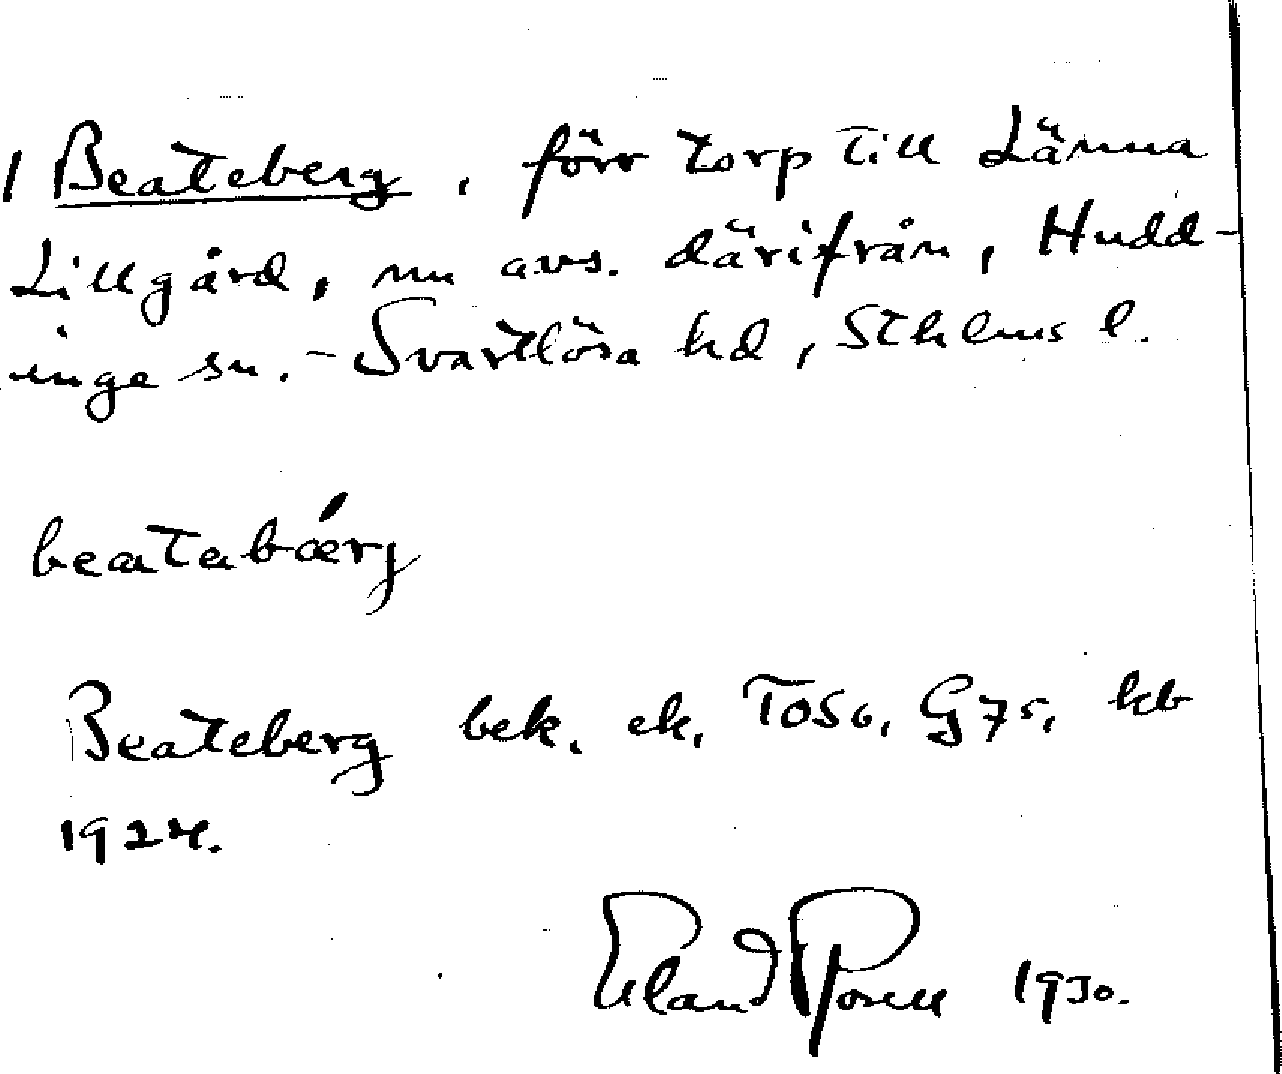 1 Beateberg, förr torp till Länna
Lillgård, nu avs. därifrån, Hudd-
inge sn. - Svartlösa hd, Sthlms l.
beatabǽrj
Beateberg bek. ek. T056, G75, kb
1924.
Erland Rosell 1930.